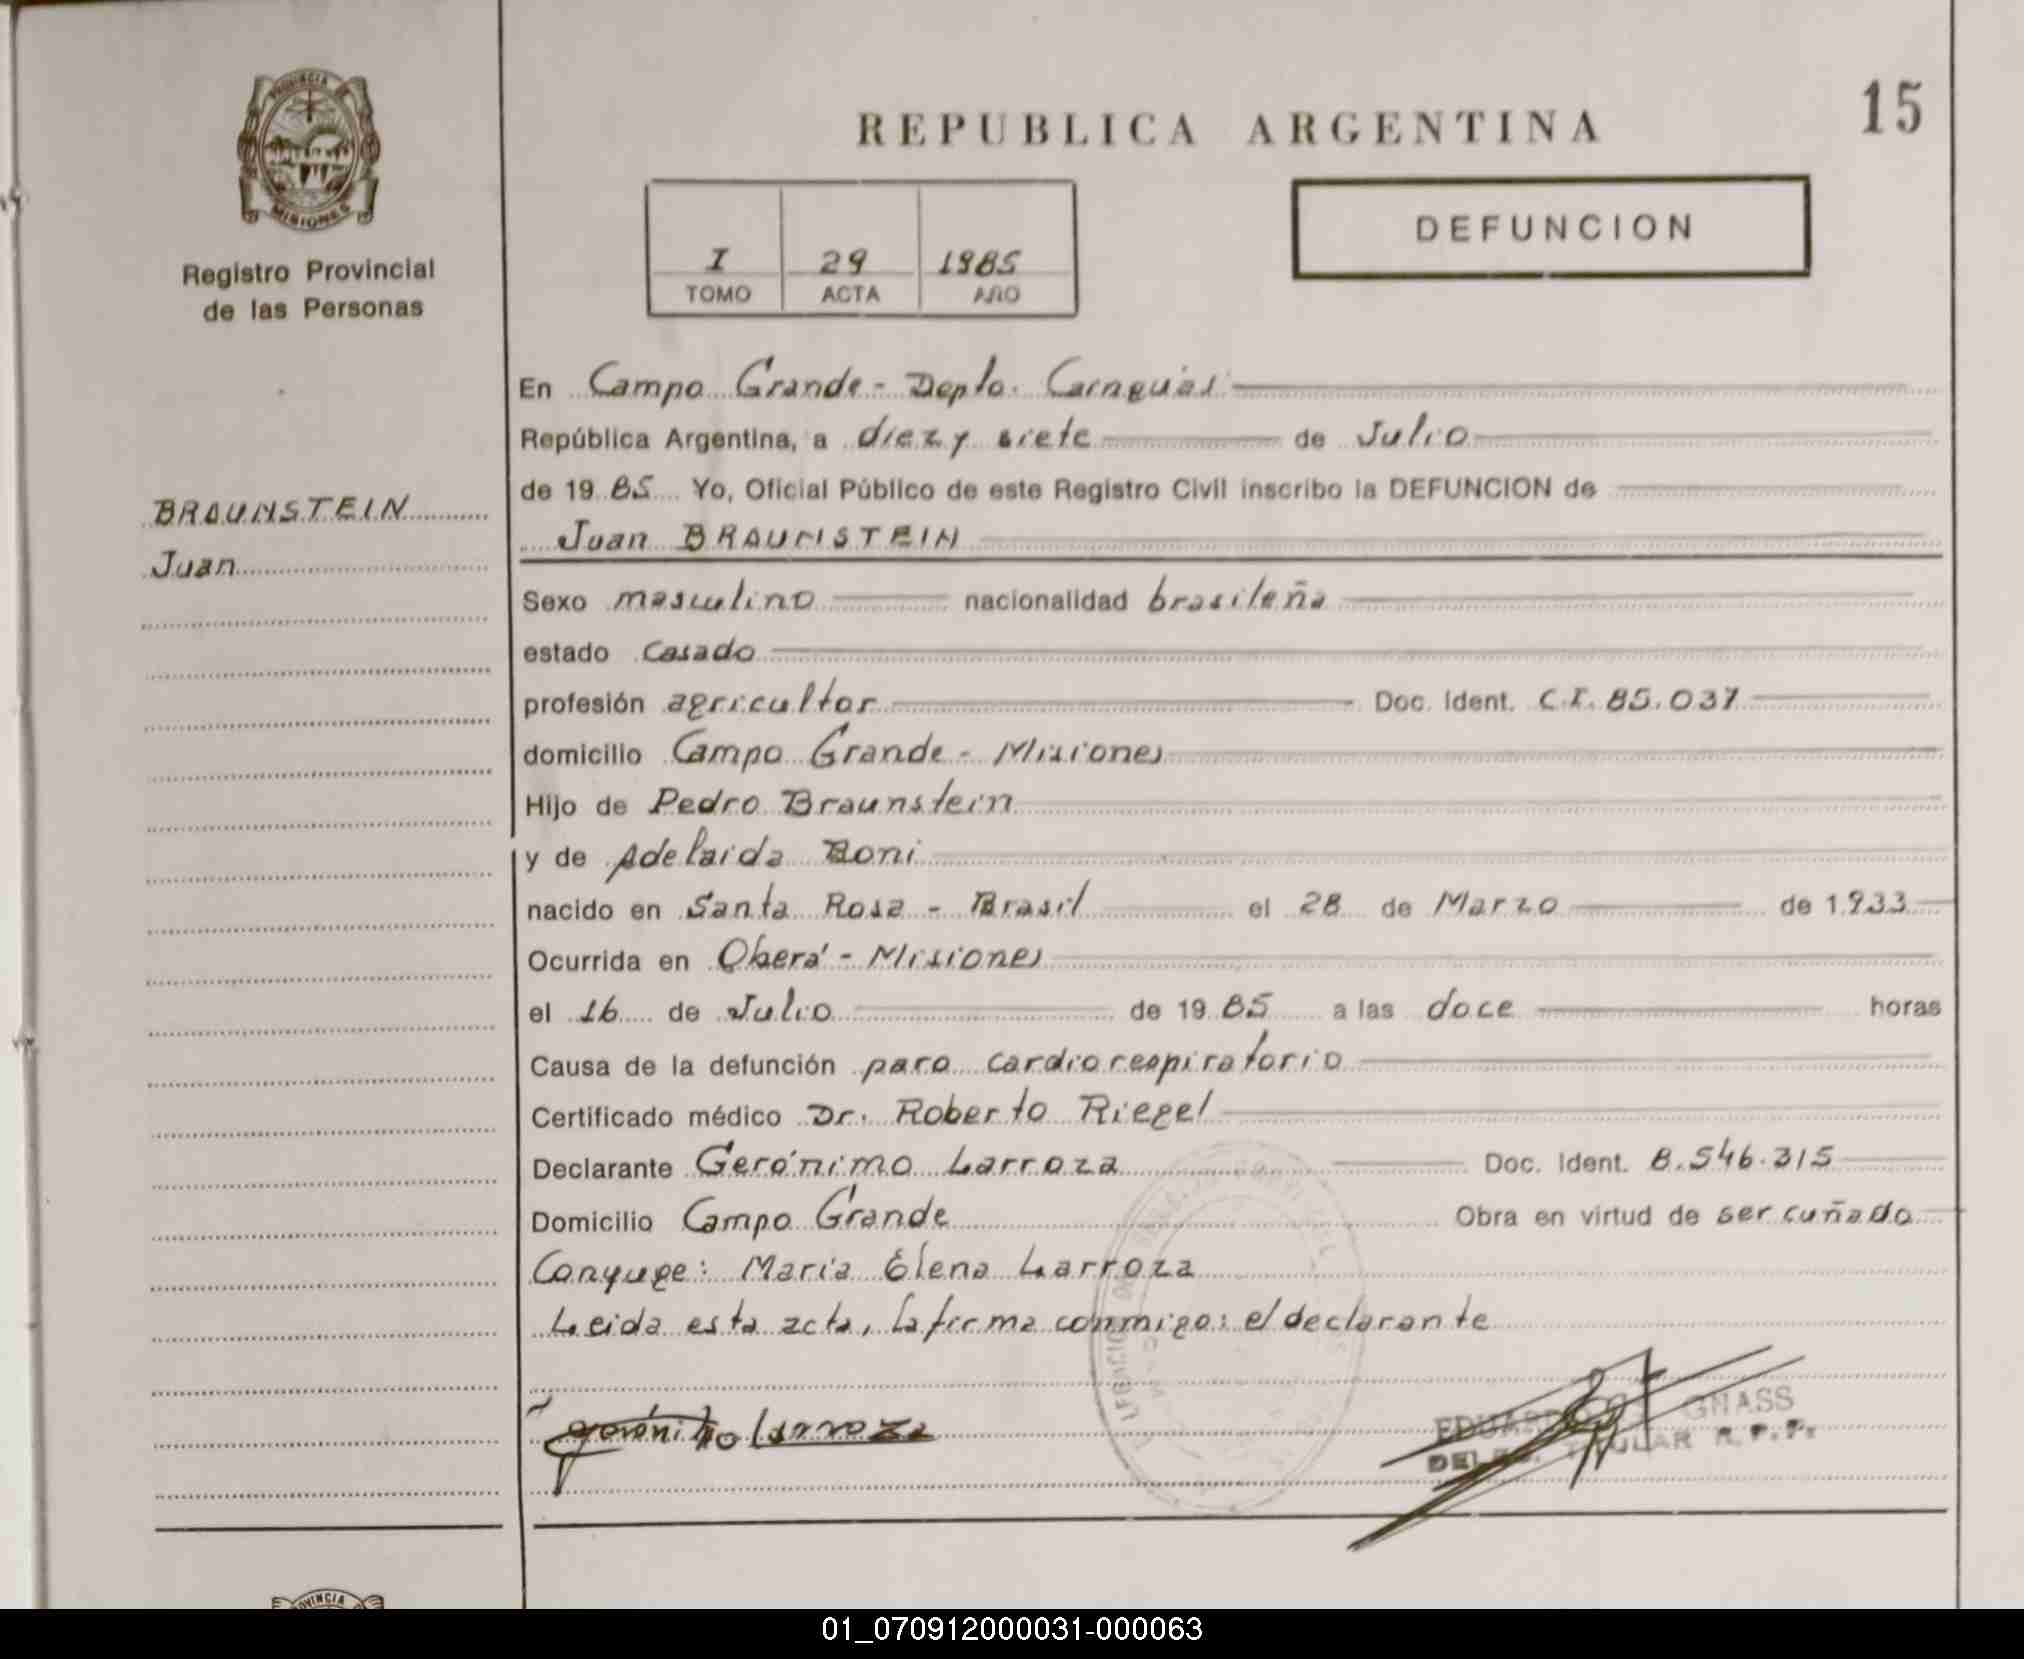 PROVINCIA DE
MISIONES
Registro Provincial
de las Personas
BRAUNSTEIN
Juan
REPUBLICA ARGENTINA
15
I 29 1985
TOMO ACTA AÑO
DEFUNCION
En Campo Grande - Depto. Cainguás
República Argentina, a diez y siete de Julio
de 19 85 Yo, Oficial Público de este Registro Civil inscribo la DEFUNCION de
Juan BRAUNSTEIN
Sexo masculino nacionalidad brasileña
estado casado
profesión agricultor Doc. Ident. C.I. 85.037
domicilio Campo Grande - Misiones
Hijo de Pedro Braunstein
y de Adelaida Boni
nacido en Santa Rosa - Brasil el 28 de Marzo de 1.933
Ocurrida en Oberá - Misiones
el 16 de Julio de 19 85 a las doce horas
Causa de la defunción paro cardiorespiratorio
Certificado médico Dr. Roberto Riegel
Declarante Gerónimo Larroza Doc. Ident. 8.546.315
Domicilio Campo Grande Obra en virtud de ser cuñado
Conyuge: Maria Elena Larroza
Leida esta acta, la firma conmigo: el declarante
Gerónimo Larroza
EDUARDO GNASS
TITULAR R.P.P.
01_070912000031-000063